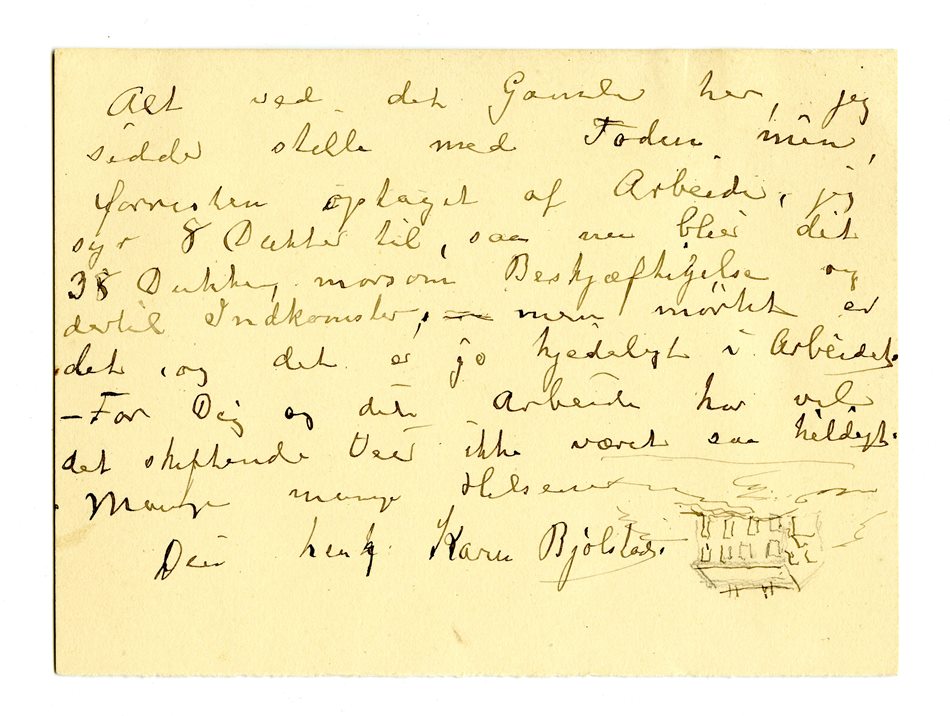 Alt ved det Gamle her, jeg
sidder stille med Foden min,
forresten optaget af Arbeide, jeg
syr 8 Dukker til, saa nu blier det
38 Dukker, morsom Beskjæftigelse og
dertil Indkomster, men mørkt er
det, og det er jo kjedeligt i Arbeidet.
– For Dig og dit Arbeide har vel
det skiftende Veir ikke været saa heldigt.
Mange mange Hilsener
Din heng Karen Bjølstad.